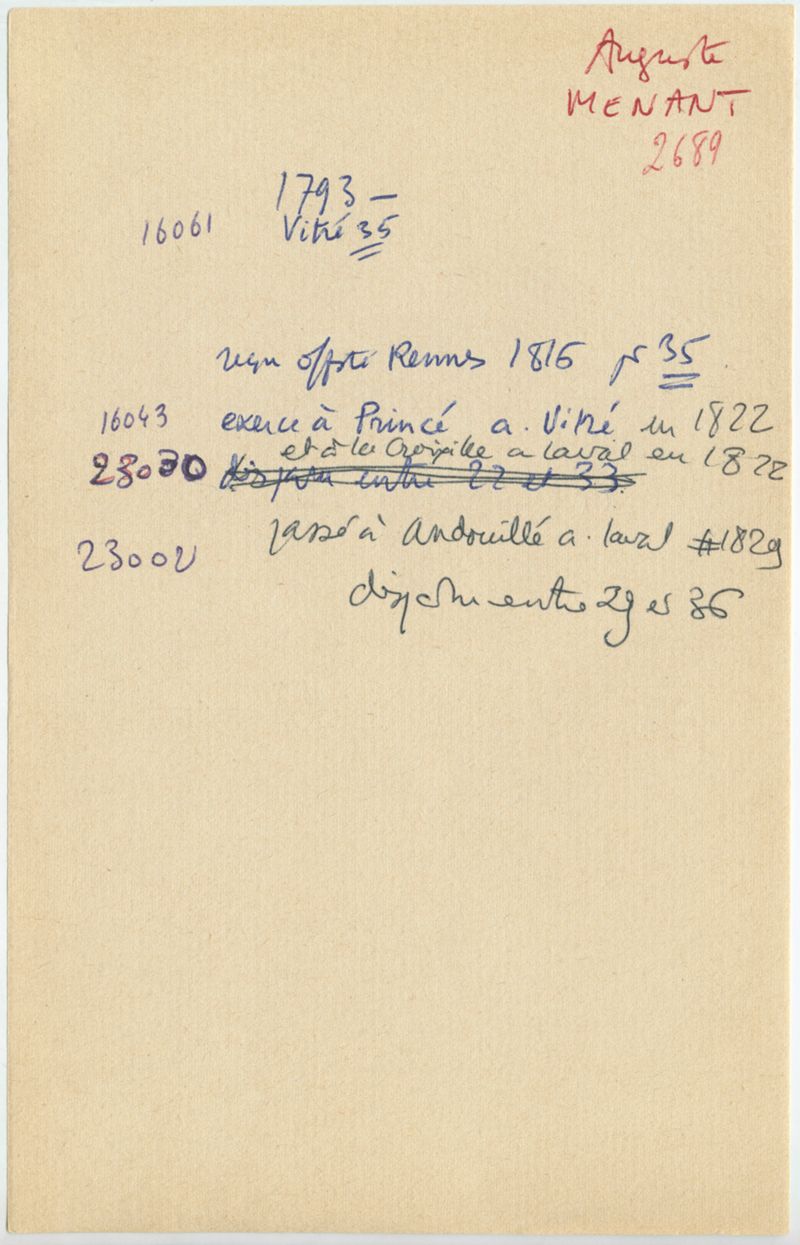 Auguste
MENANT
2689
1793 —
16061 Vitré 35
reçu offté Rennes 1816 pr 35
16043 exerce à Princé a. Vitré en 1822
et à la Croixille a Laval en 1822
23030 disparu entre 22 et 33
23002 passé à Andouillé a. Laval #1829
disparu entre 29 et 36